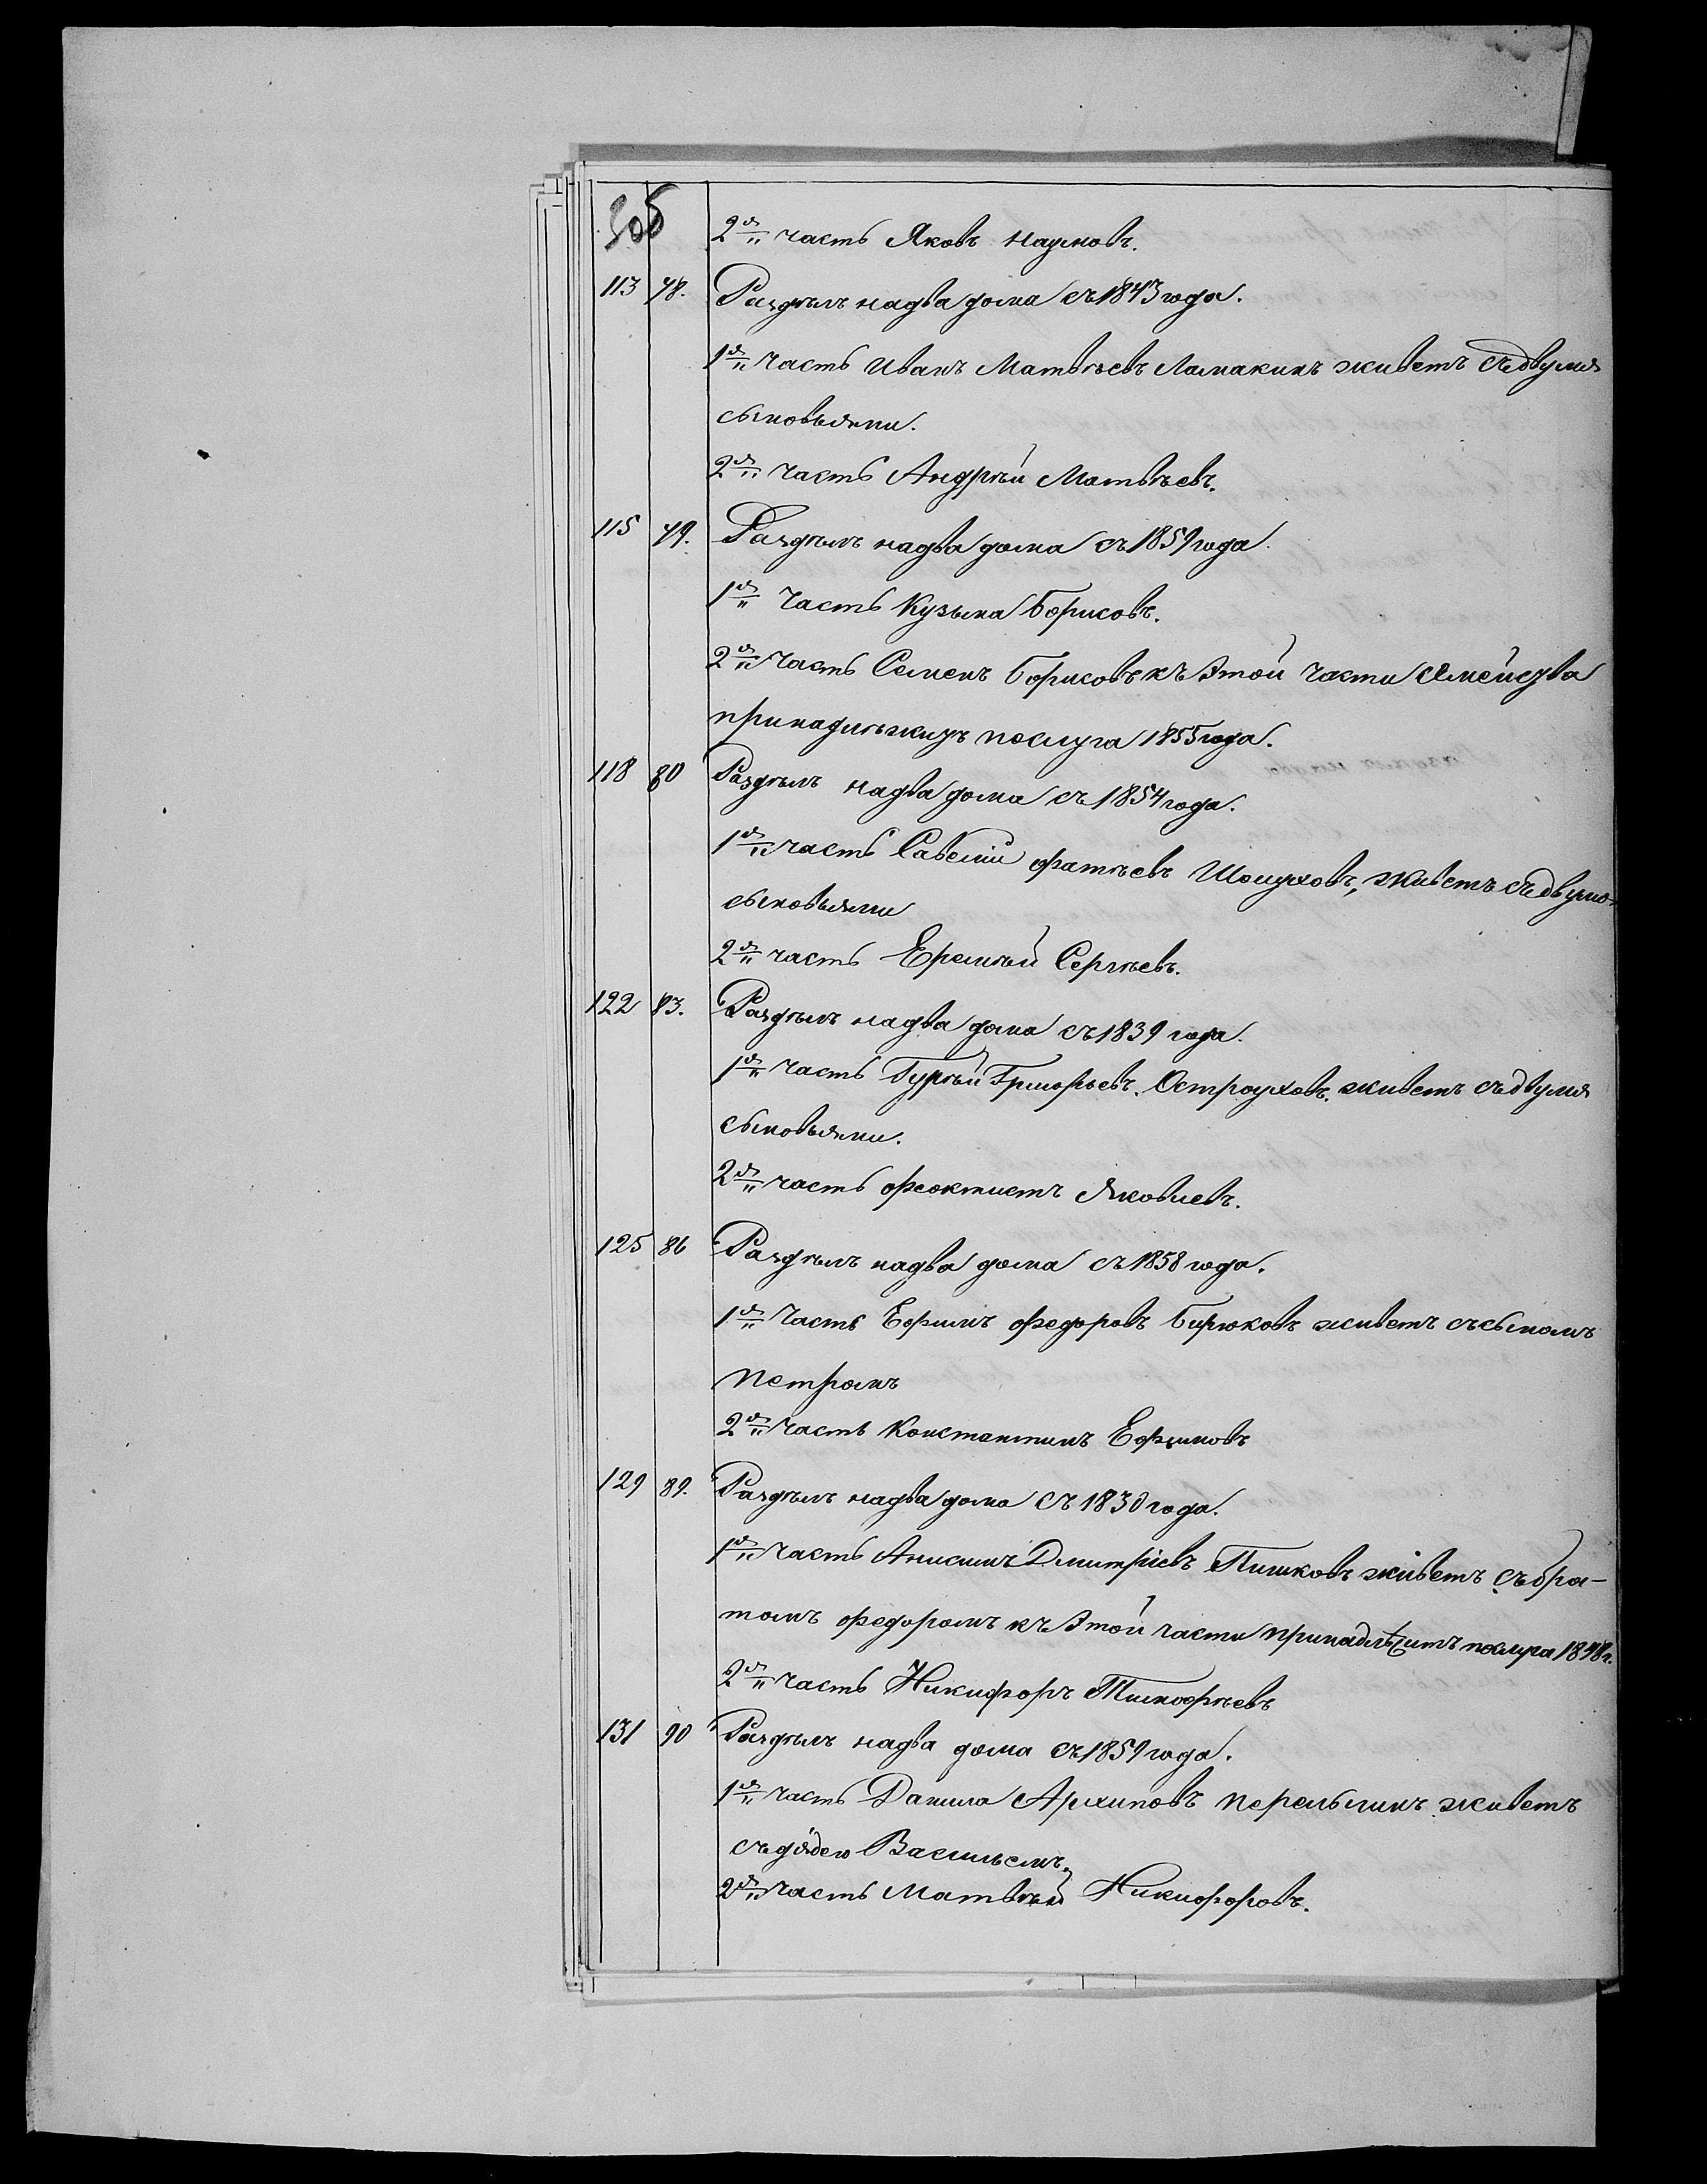 305
2я часть Яковъ Наумовъ.
113 78. Раздѣлъ на два дома съ 1843 года.
1я часть Иванъ Матвѣевъ Ламакинъ живетъ съ двумя
сыновьями.
2я часть Андрѣй Матвѣевъ.
115 79. Раздѣлъ на два дома съ 1859 года.
1я часть Кузьма Борисовъ.
2я часть Семенъ Борисовъ къ этой части семейства
1855 года.
118 80 Раздѣлъ на два дома съ 1854 года.
1я часть Савелій Фатѣевъ живетъ съ двумя
сыновьями
2я часть Еремѣй Сергѣевъ.
122 83. Раздѣлъ на два дома съ 1839 года.
1я часть Гурѣй Григорьевъ Остроуховъ. живетъ съ двумя
сыновьями.
2я часть Феоктистъ Яковлевъ.
125 86 Раздѣлъ на два дома съ 1858 года.
1я часть Ефимъ Федоровъ Бирюковъ живетъ съ сыномъ
Петромъ
2я часть Константинъ Ефимовъ
129 89. Раздѣлъ на два дома съ 1830 года.
1я часть Анисимъ Дмитріевъ живетъ съ бра-
томъ Федоромъ къ этой части принадлѣжитъ
2я часть Никифоръ Тимофѣевъ
131 90 Раздѣлъ на два дома съ 1859 года.
1я часть Данила Архиповъ живетъ
съ дядею Васильемъ.
2я часть Матвѣй Никифоровъ.